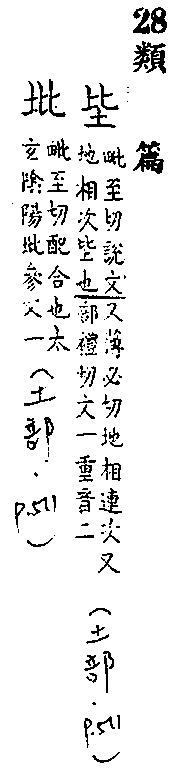 28類篇
坒
毗至切說文
地相次坒也
又薄必切地相連次又
部禮切文一重音二
(土部.p.511)
毗至切配合也太
玄陰陽坒參文一
(土部.p.511)